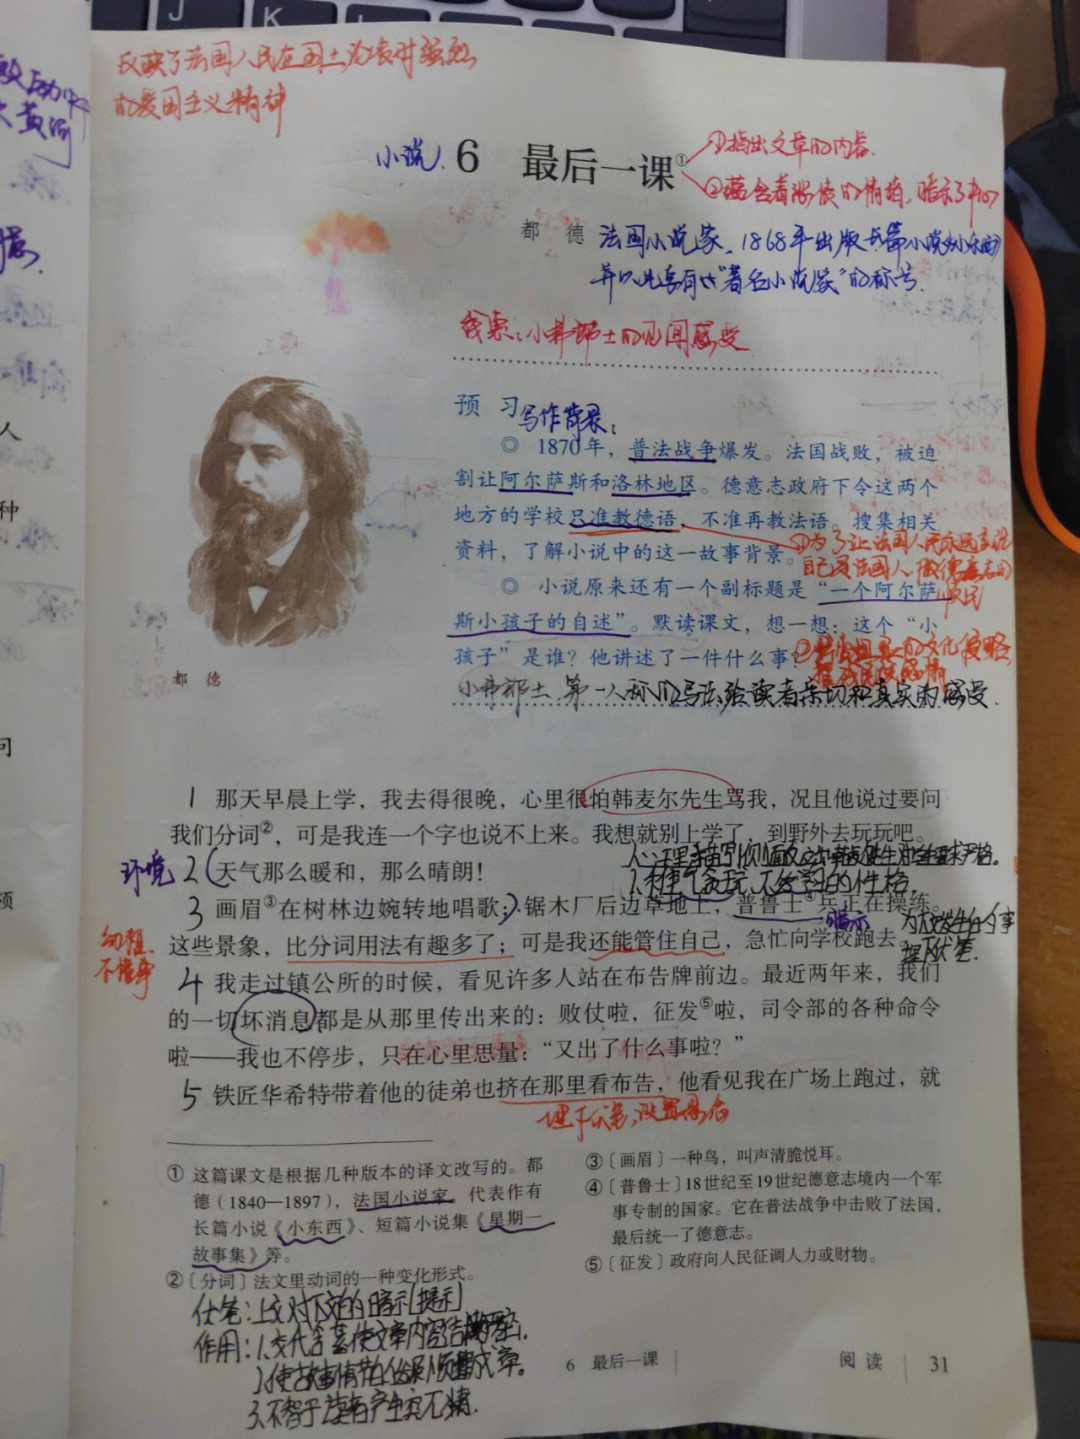 J
K
反映了法国人民在国土沦丧时强烈
的爱国主义精神
小说
6 最后一课①
①指出文章的内容
②蕴含着
的情
暗示了中心
都 德
法国小说家、1868年出版长篇小说《小东西》
并以此享有
“著名小说家”的称号
线索:小弗郎士的见闻感受
预 习
写作背景:
◎ 1870年,普法战争爆发。法国战败,被迫
割让阿尔萨斯和洛林地区。德意志政府下令这两个
地方的学校只准教德语,不准再教法语。搜集相关
资料,了解小说中的这一故事背景。
①为了让法国人民永远忘记
自己是法国人
◎ 小说原来还有一个副标题是“一个阿尔萨
斯小孩子的自述”。默读课文,想一想:这个“小
孩子”是谁?他讲述了一件什么事?
的文化侵略
小弗郎士 第一人称的写法给读者亲切和真实的感受.
都 德
1 那天早晨上学,我去得很晚,心里很怕韩麦尔先生骂我,况且他说过要问
我们分词②,可是我连一个字也说不上来。我想就别上学了,到野外去玩玩吧。
环境
2 天气那么暖和,那么晴朗!
3 画眉③在树林边婉转地唱歌;锯木厂后边草地上,普鲁士④兵正在操练。
暗示
幼稚
不懂事
这些景象,比分词用法有趣多了;可是我还能管住自己,急忙向学校跑去。
埋下伏笔
4 我走过镇公所的时候,看见许多人站在布告牌前边。最近两年来,我们
的一切坏消息都是从那里传出来的:败仗啦,征发⑤啦,司令部的各种命令
啦——我也不停步,只在心里思量:“又出了什么事啦?”
5 铁匠华希特带着他的徒弟也挤在那里看布告,他看见我在广场上跑过,就
埋下伏笔,设置悬念
① 这篇课文是根据几种版本的译文改写的。都
德(1840—1897),法国小说家。代表作有
长篇小说《小东西》、短篇小说集《星期一
故事集》等。
②〔分词〕法文里动词的一种变化形式。
③〔画眉〕一种鸟,叫声清脆悦耳。
④〔普鲁士〕18世纪至19世纪德意志境内一个军
事专制的国家。它在普法战争中击败了法国,
最后统一了德意志。
⑤〔征发〕政府向人民征调人力或财物。
伏笔:上文对下文的暗示[提示]
作用:1.交代含蓄使文章内容结构严密.
2.使故事情节的发展顺理成章。
3.不智于读者产生突兀
6 最后一课
阅 读
31